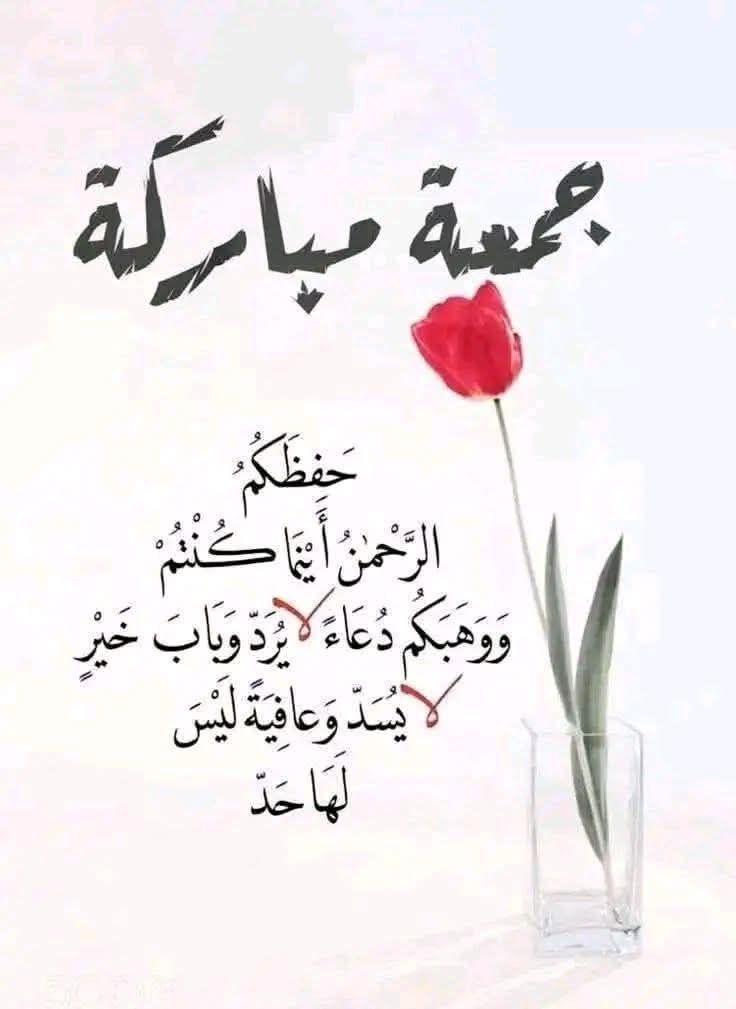 جمعة مباركة
حَفِظَكُمُ
الرَّحْمٰنُ أَيْنَمَا كُنْتُمْ
وَوَهَبَكُم دُعَاءً لا يُرَدّ وَبَابَ خَيْرٍ
لا يُسَدّ وَعافِيَةً لَيْسَ
لَهَا حَدّ